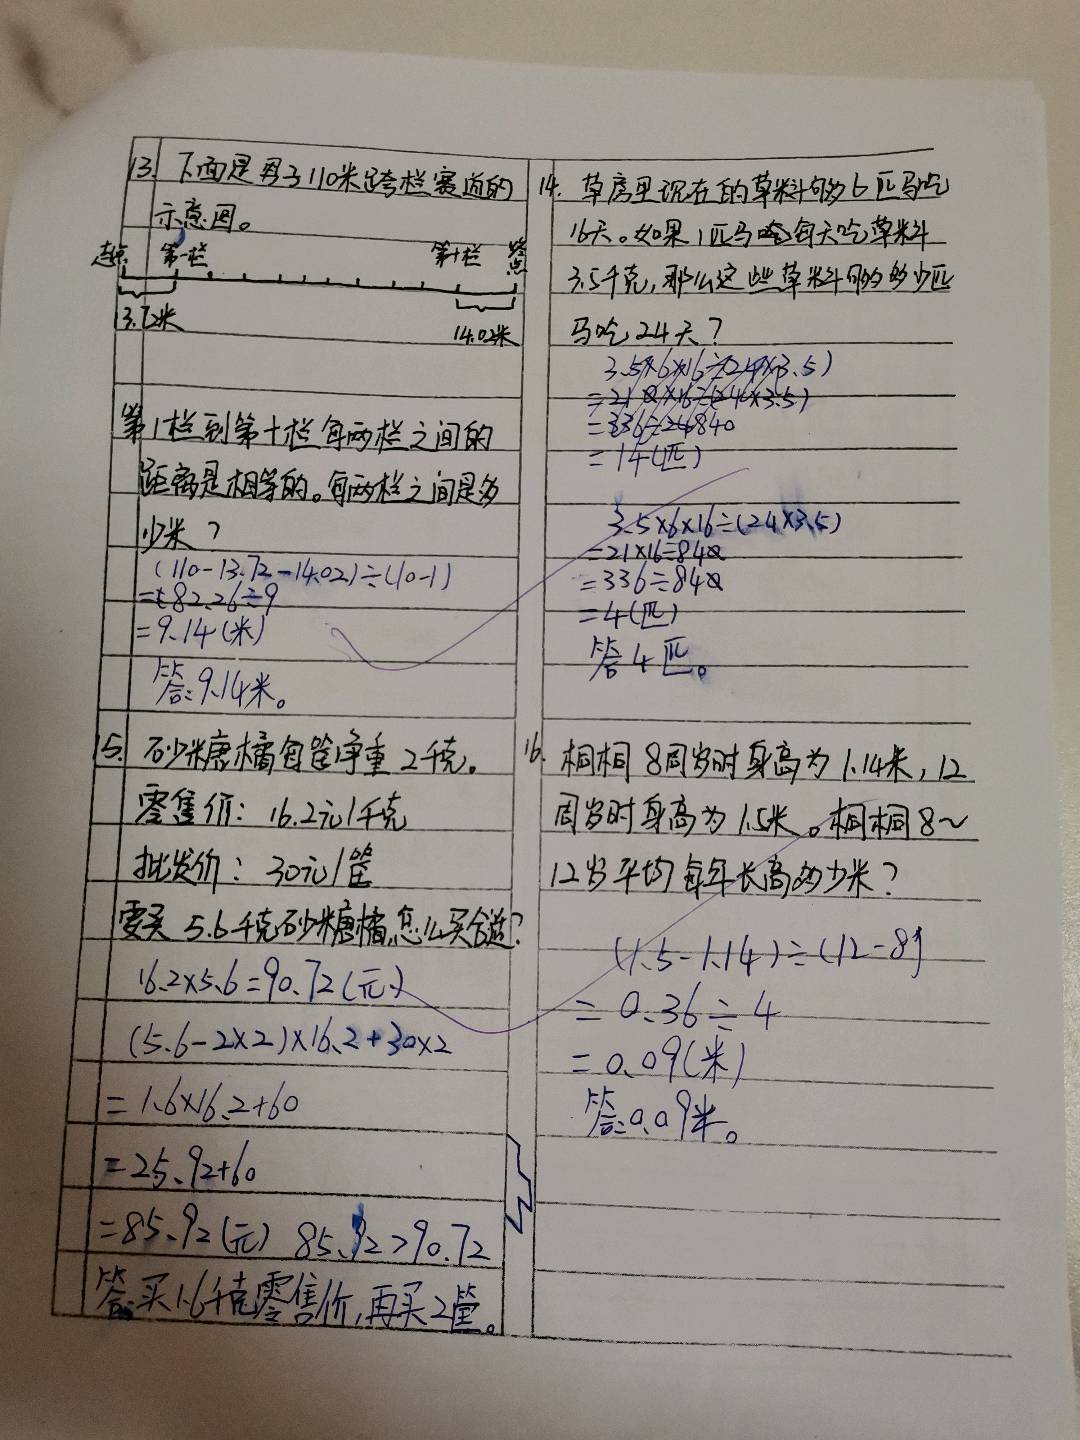 13. 下面是男子110米跨栏赛道的
示意图。
起点 第一栏 第十栏 终点
13.72米 14.02米
第1栏到第十栏每两栏之间的
距离是相等的。每两栏之间是多
少米？
(110-13.72-14.02)÷(10-1)
=82.26÷9
=9.14(米)
答:9.14米。
14. 草房里现在的草料够6匹马吃
16天。如果1匹马每天吃草料
3.5千克,那么这些草料够多少匹
马吃24天？
3.5×6×16÷(24×3.5)
=21×16÷(24×3.5)
=336÷840
=14(匹)
3.5×6×16÷(24×3.5)
=21×16÷84
=336÷84
=4(匹)
答4匹。
15. 砂糖橘每筐净重2千克。
零售价：16.2元/千克
批发价：30元/筐
要买5.6千克砂糖橘,怎么买合适?
16.2×5.6=90.72(元)
(5.6-2×2)×16.2+30×2
=1.6×16.2+60
=25.92+60
=85.92(元) 85.92>90.72
答:买1.6千克零售价,再买2筐。
16. 桐桐8周岁时身高为1.14米,12
周岁时身高为1.5米。桐桐8~
12岁平均每年长高多少米？
(1.5-1.14)÷(12-8)
=0.36÷4
=0.09(米)
答:0.09米。